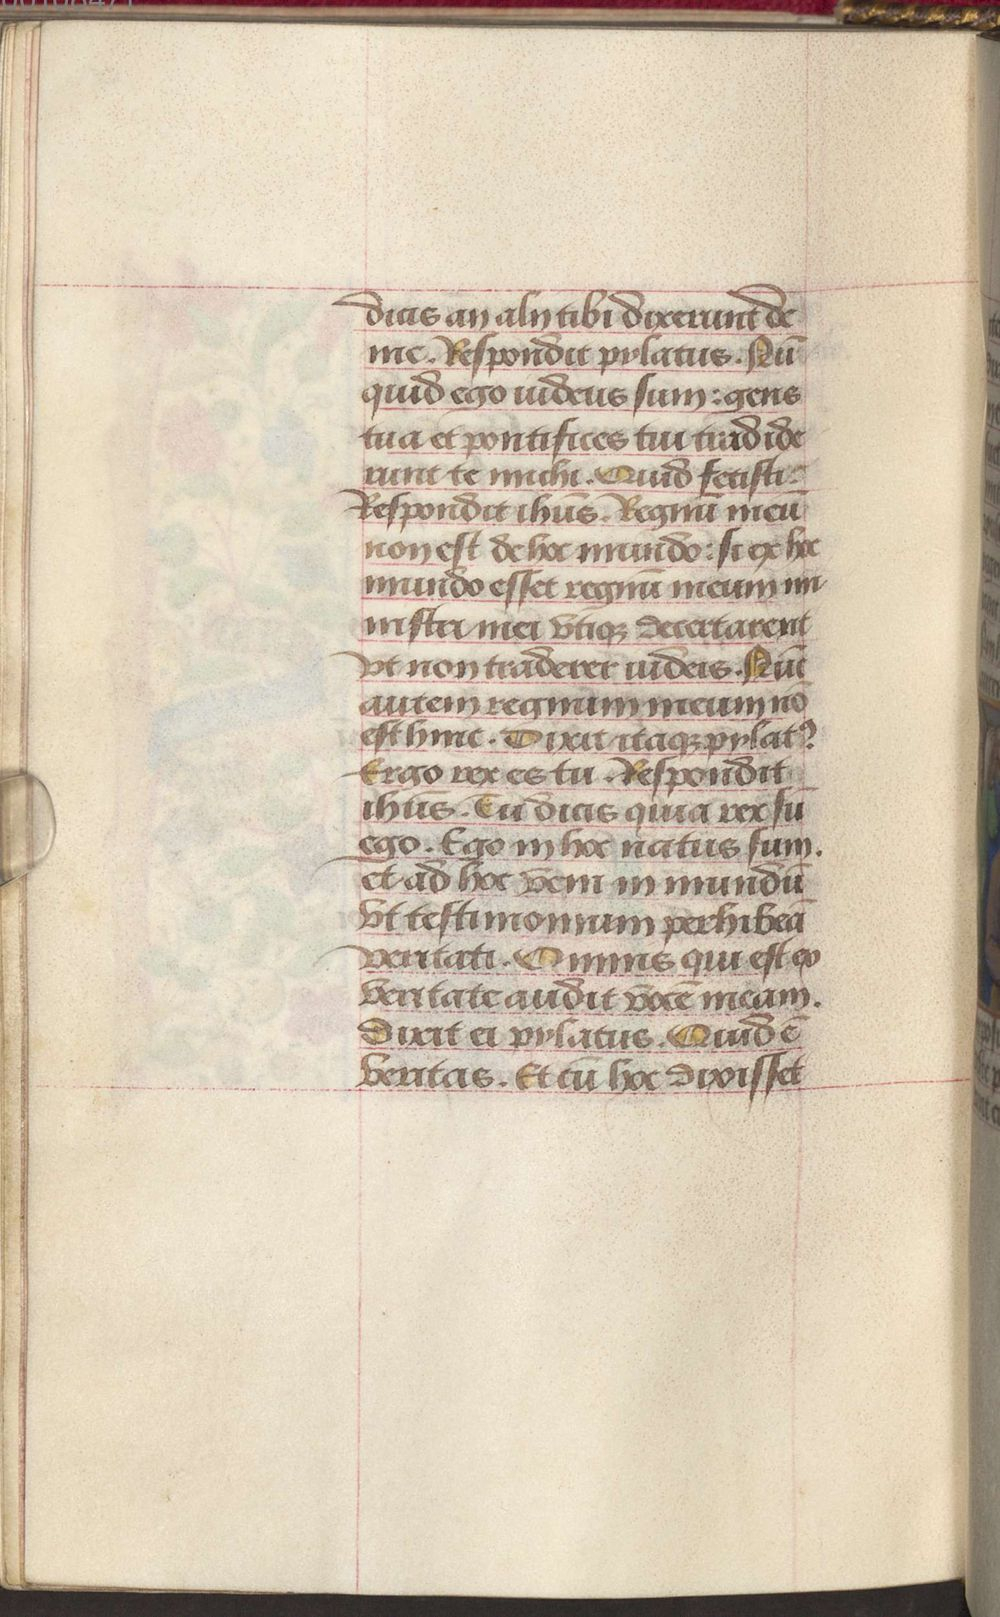 dicis an alij tibi dixerunt de
me. Respondit pylatus. Nū
quid ego iudeus sum: gens
tua et pontifices tui tradide
runt te michi. Quid fecisti?
Respondit ihūs. Regnū meū
non est de hoc mundo: si ex hoc
mundo esset regnū meum mi
nistri mei vtiqꝫ decertarent
vt non traderer iudeis. Nūc
autem regnum meum nō
est hinc. Dixit itaqꝫ pylatꝰ
Ergo rex es tu. Respondit
ihūs. Tu dicis quia rex sū
ego. Ego in hoc natus sum.
et ad hoc veni in mundū
vt testimonium perhibeā
veritati. Omnis qui est ex
veritate audit vocē meam.
Dixit ei pylatus. Quid ē
veritas. Et cū hoc dixisset